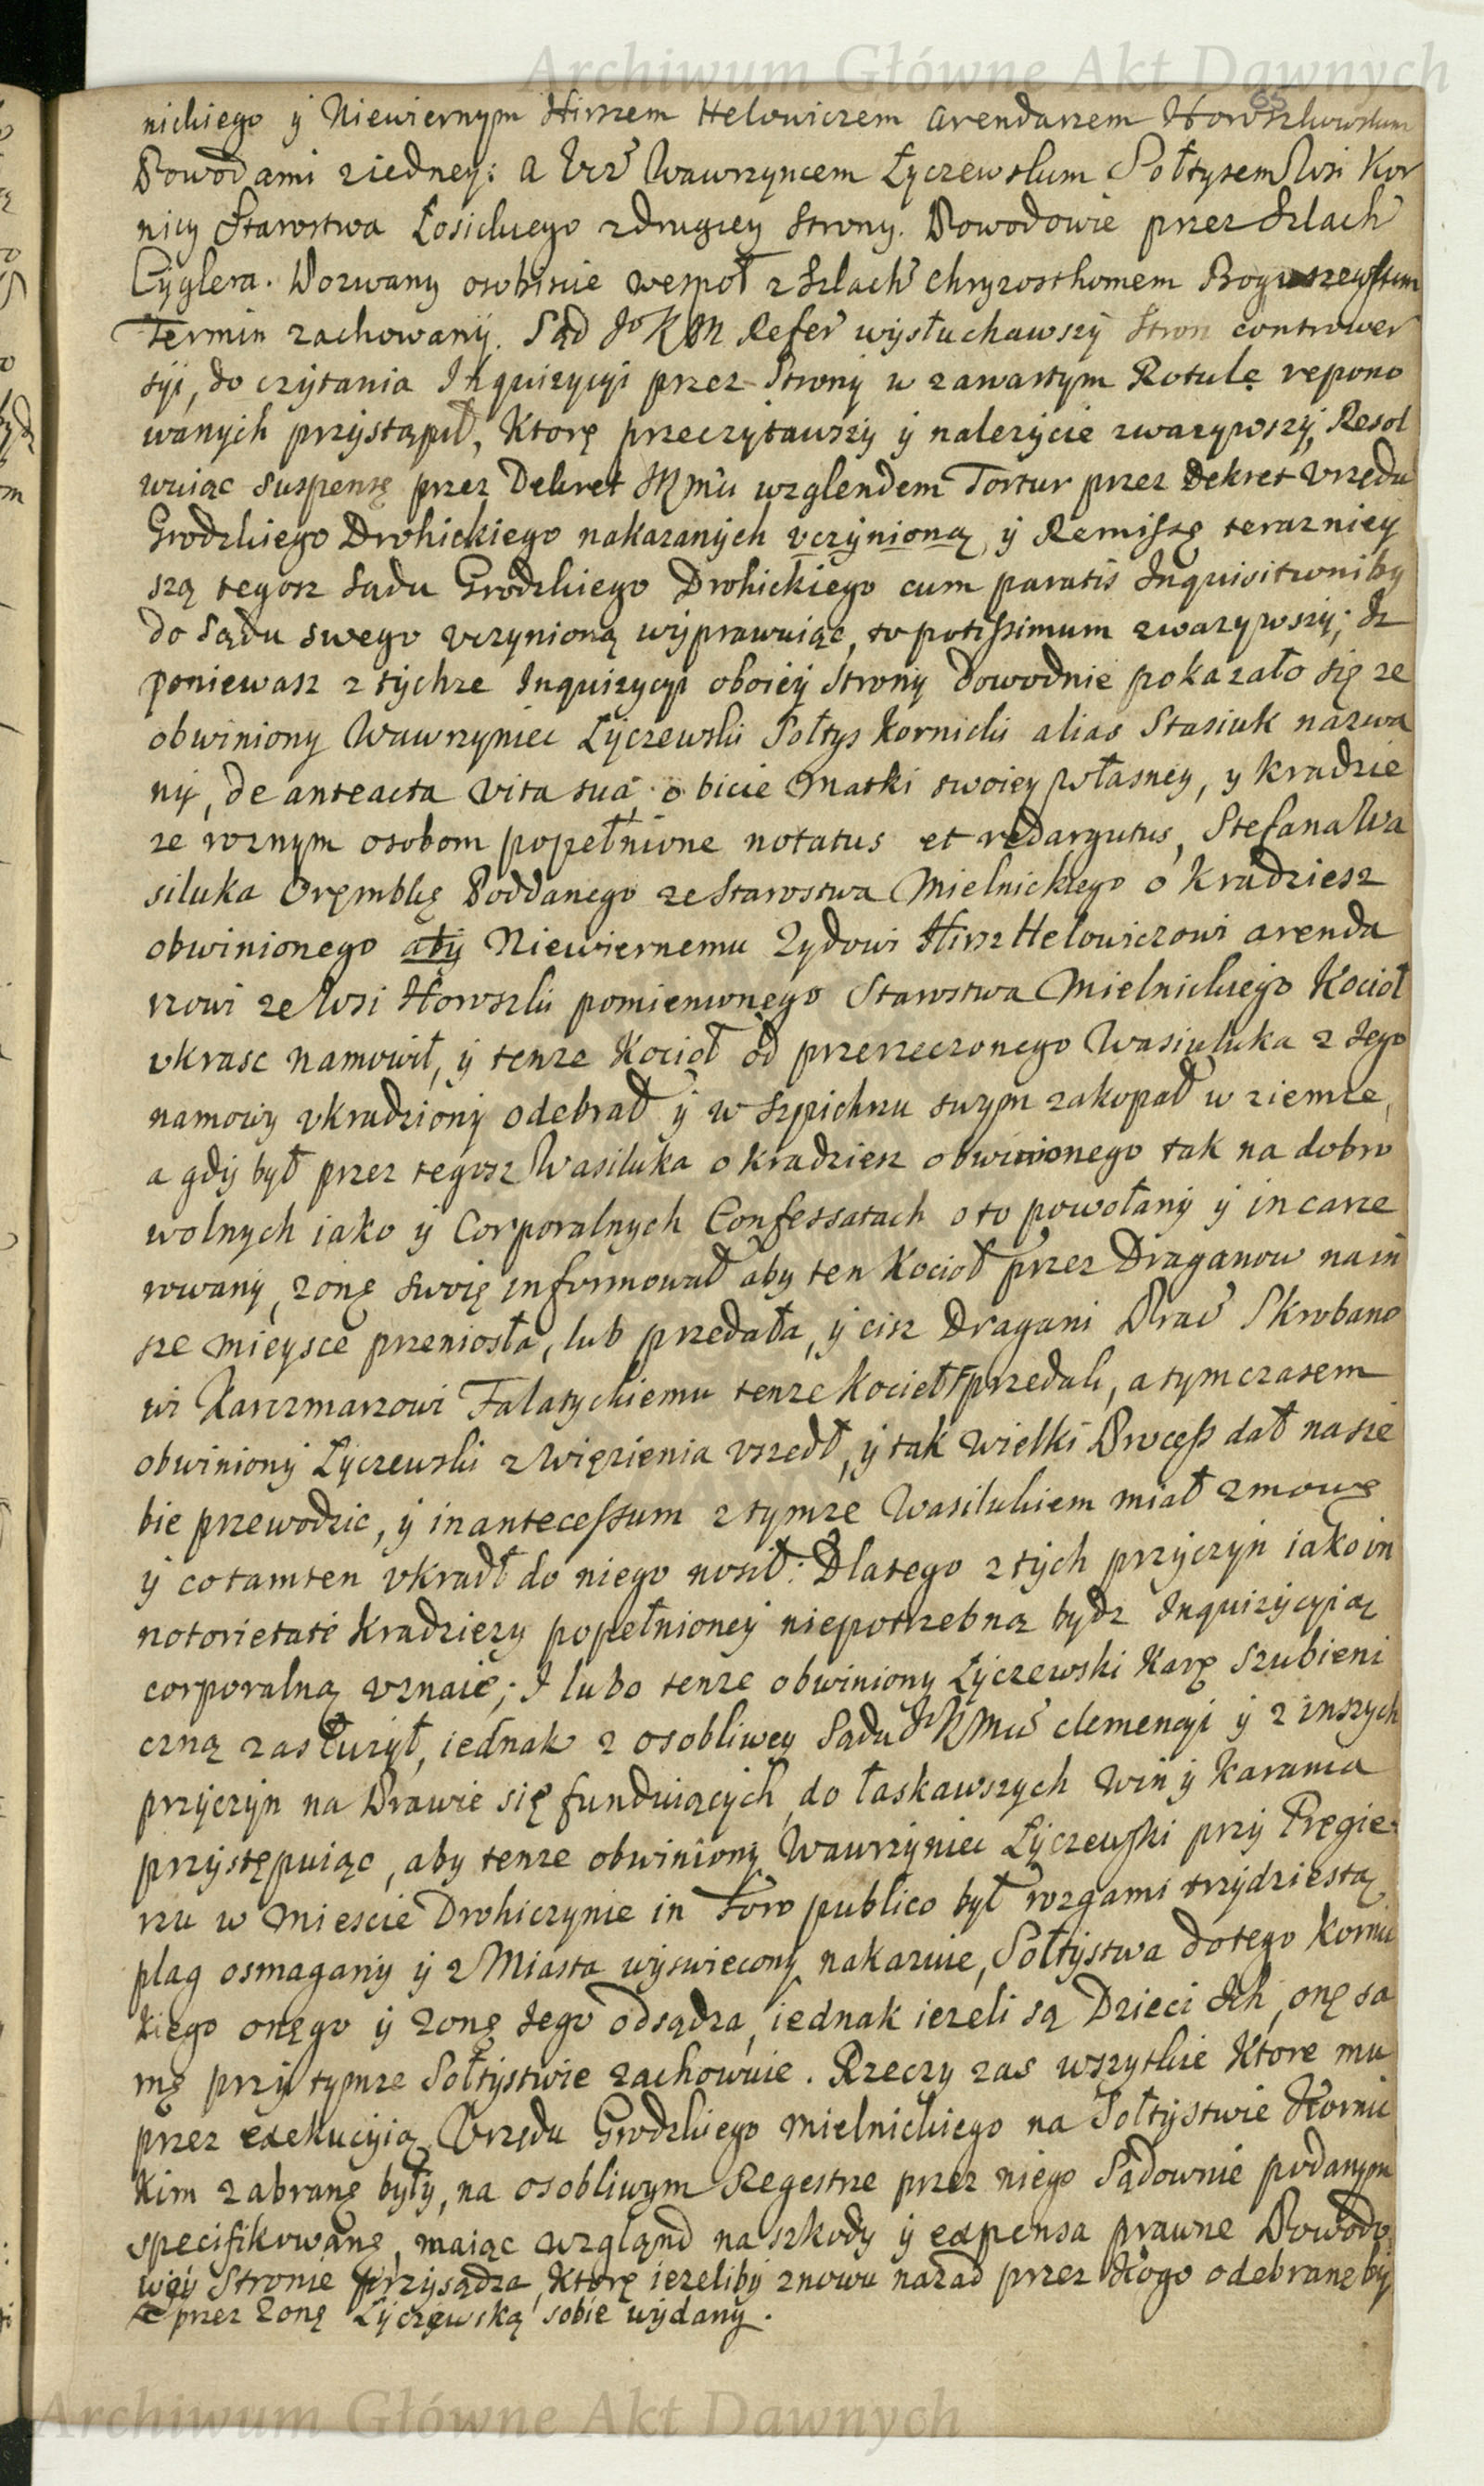 Archiwum Główne Akt Dawnych
65
nickiego ÿ Niewiernym Hirszem Helowiczem arendarzem Howszkowskim
Powodami ziedney: a Vcz Wawrzyncem Łyczewskim Sołtysem Wsi Kor
nicy Starostwa Łosickiego zdrugiey strony. Powodowie przez Szlach
Cÿglera. Pozwany osobiscie wespoł z Szlach Chryzosthomem Boguszewskim
Termin zachowanÿ. Sąd JoKM Refer wÿsłuchawszÿ Stron contrower
sÿi, do czÿtania Inquizycyi przez Stronÿ w zawartym Rotulę repono
wanÿch przÿstąpił, Ktorę przeczÿtawszÿ ÿ nalezÿcie zwazÿwszÿ, Resol
wuiąc suspensę przez Dekret JKMci wzglendem Tortur przez Dekret Vrzędu
Grodzkiego Drohickiego nakazanÿch vczÿnioną, ÿ Remissę terazniey
szą tegosz Sądu Grodzkiego Drohickiego cum paratis Inquisitionibq
do Sądu swego vczynioną wÿprawuiąc, to potissimum zwazywszÿ; Iz
poniewasz z tÿchze Inquizycyi oboiéÿ Stronÿ dowodnie pokazało się ze
obwiniony Wawrzyniec Łÿczewski Sołtys Kornicki alias Stasiuk nazwa
nÿ, de anteacta vita sua o bicie Matki swoieÿ własney, y kradzie
ze roznym osobom popełnione notatus et redargutus, Stefana Wa
siluka Oręmblę Poddanego ze Starostwa Mielnickiego o kradziesz
obwinionego abÿ Niewiernemu Zydowi Hirsz Helowiczowi arenda
rzowi ze Wsi Howszki pomienionęgo Starostwa Mielnickiego Kocioł
vkrasc namowił, ÿ tenze Kocioł od przerzeczonego Wasiuluka z Jego
namowÿ vkradzionÿ odebrał ÿ w szpichrzu swym zakopał w ziemie,
a gdÿ był przez tegosz Wasiluka o kradziesz obwinionego tak na dobro
wolnych iako ÿ Corporalnych Confessatach o to powołanÿ ÿ incarce
rowanÿ, zonę swoię informował aby ten Kocioł przez Draganow na in
sze mieÿsce przeniosła, lub przedała, ÿ cisz Dragani Prac Skrobano
wi Karczmarzowi Falatyckiemu tenze Kocieł przedali, a tym czasem
obwinionÿ Łÿczewski z więzienia vszedł, ÿ tak wielki Process dał na sie
bie przewodzic, ÿ in antecessum z tymze Wasilukiem miał zmowę
ÿ co tamten vkradł do niego nosił: Dlatego z tÿch przÿczÿn iako in
notorietate kradziezy popełnioneÿ niepotrzebną bÿdz Inquizÿcÿią
corporalną vznaie; I lubo tenze obwiniony Łÿczewski karę szubieni
czną zasłuzÿł, iednak z osobliwey Sądu JKMci clemencyi ÿ z inszych
przÿczÿn na Prawie się funduiącÿch, do łaskawszych win ÿ karania
przÿstępuiąc, aby tenze obwinionÿ Wawrzÿniec Łÿczewski przÿ Pręgie
rzu w Miescie Drohiczynie in Foro publico bÿł rozgami trzÿdziestą
plag osmaganÿ ÿ z Miasta wÿswiecony nakazuie, Sołtÿstwa do tego Kornic
kiego onęgo ÿ zonę Jego odsądza, iednak iezeli są Dzieci Ich, onę sa
mę przÿ tymze Sołtÿstwie zachowuie. Rzeczy zas wszytkie Ktore mu
przez exekucÿią Vrzędu Grodzkiego Mielnickiego na Sołtÿstwie Kornic
kim zabranę bÿłÿ, na osobliwym Regestrze przez niego Sądownie podanym
specifikowanę, maiąc wzgląnd na szkodÿ ÿ expensa prawne Powodo
węÿ Stronie przÿsądza, Ktorę iezelibÿ znowu nazad przez Kogo odebranę by
przez zonę Łÿczęwską sobie wÿdanÿ.
Archiwum Główne Akt Dawnych